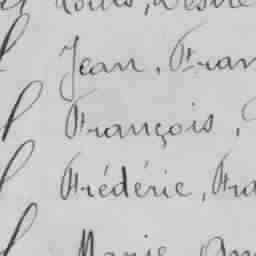 Louis, Désiré
Jean, Fran
François,
Frédéric, Fra
Marie